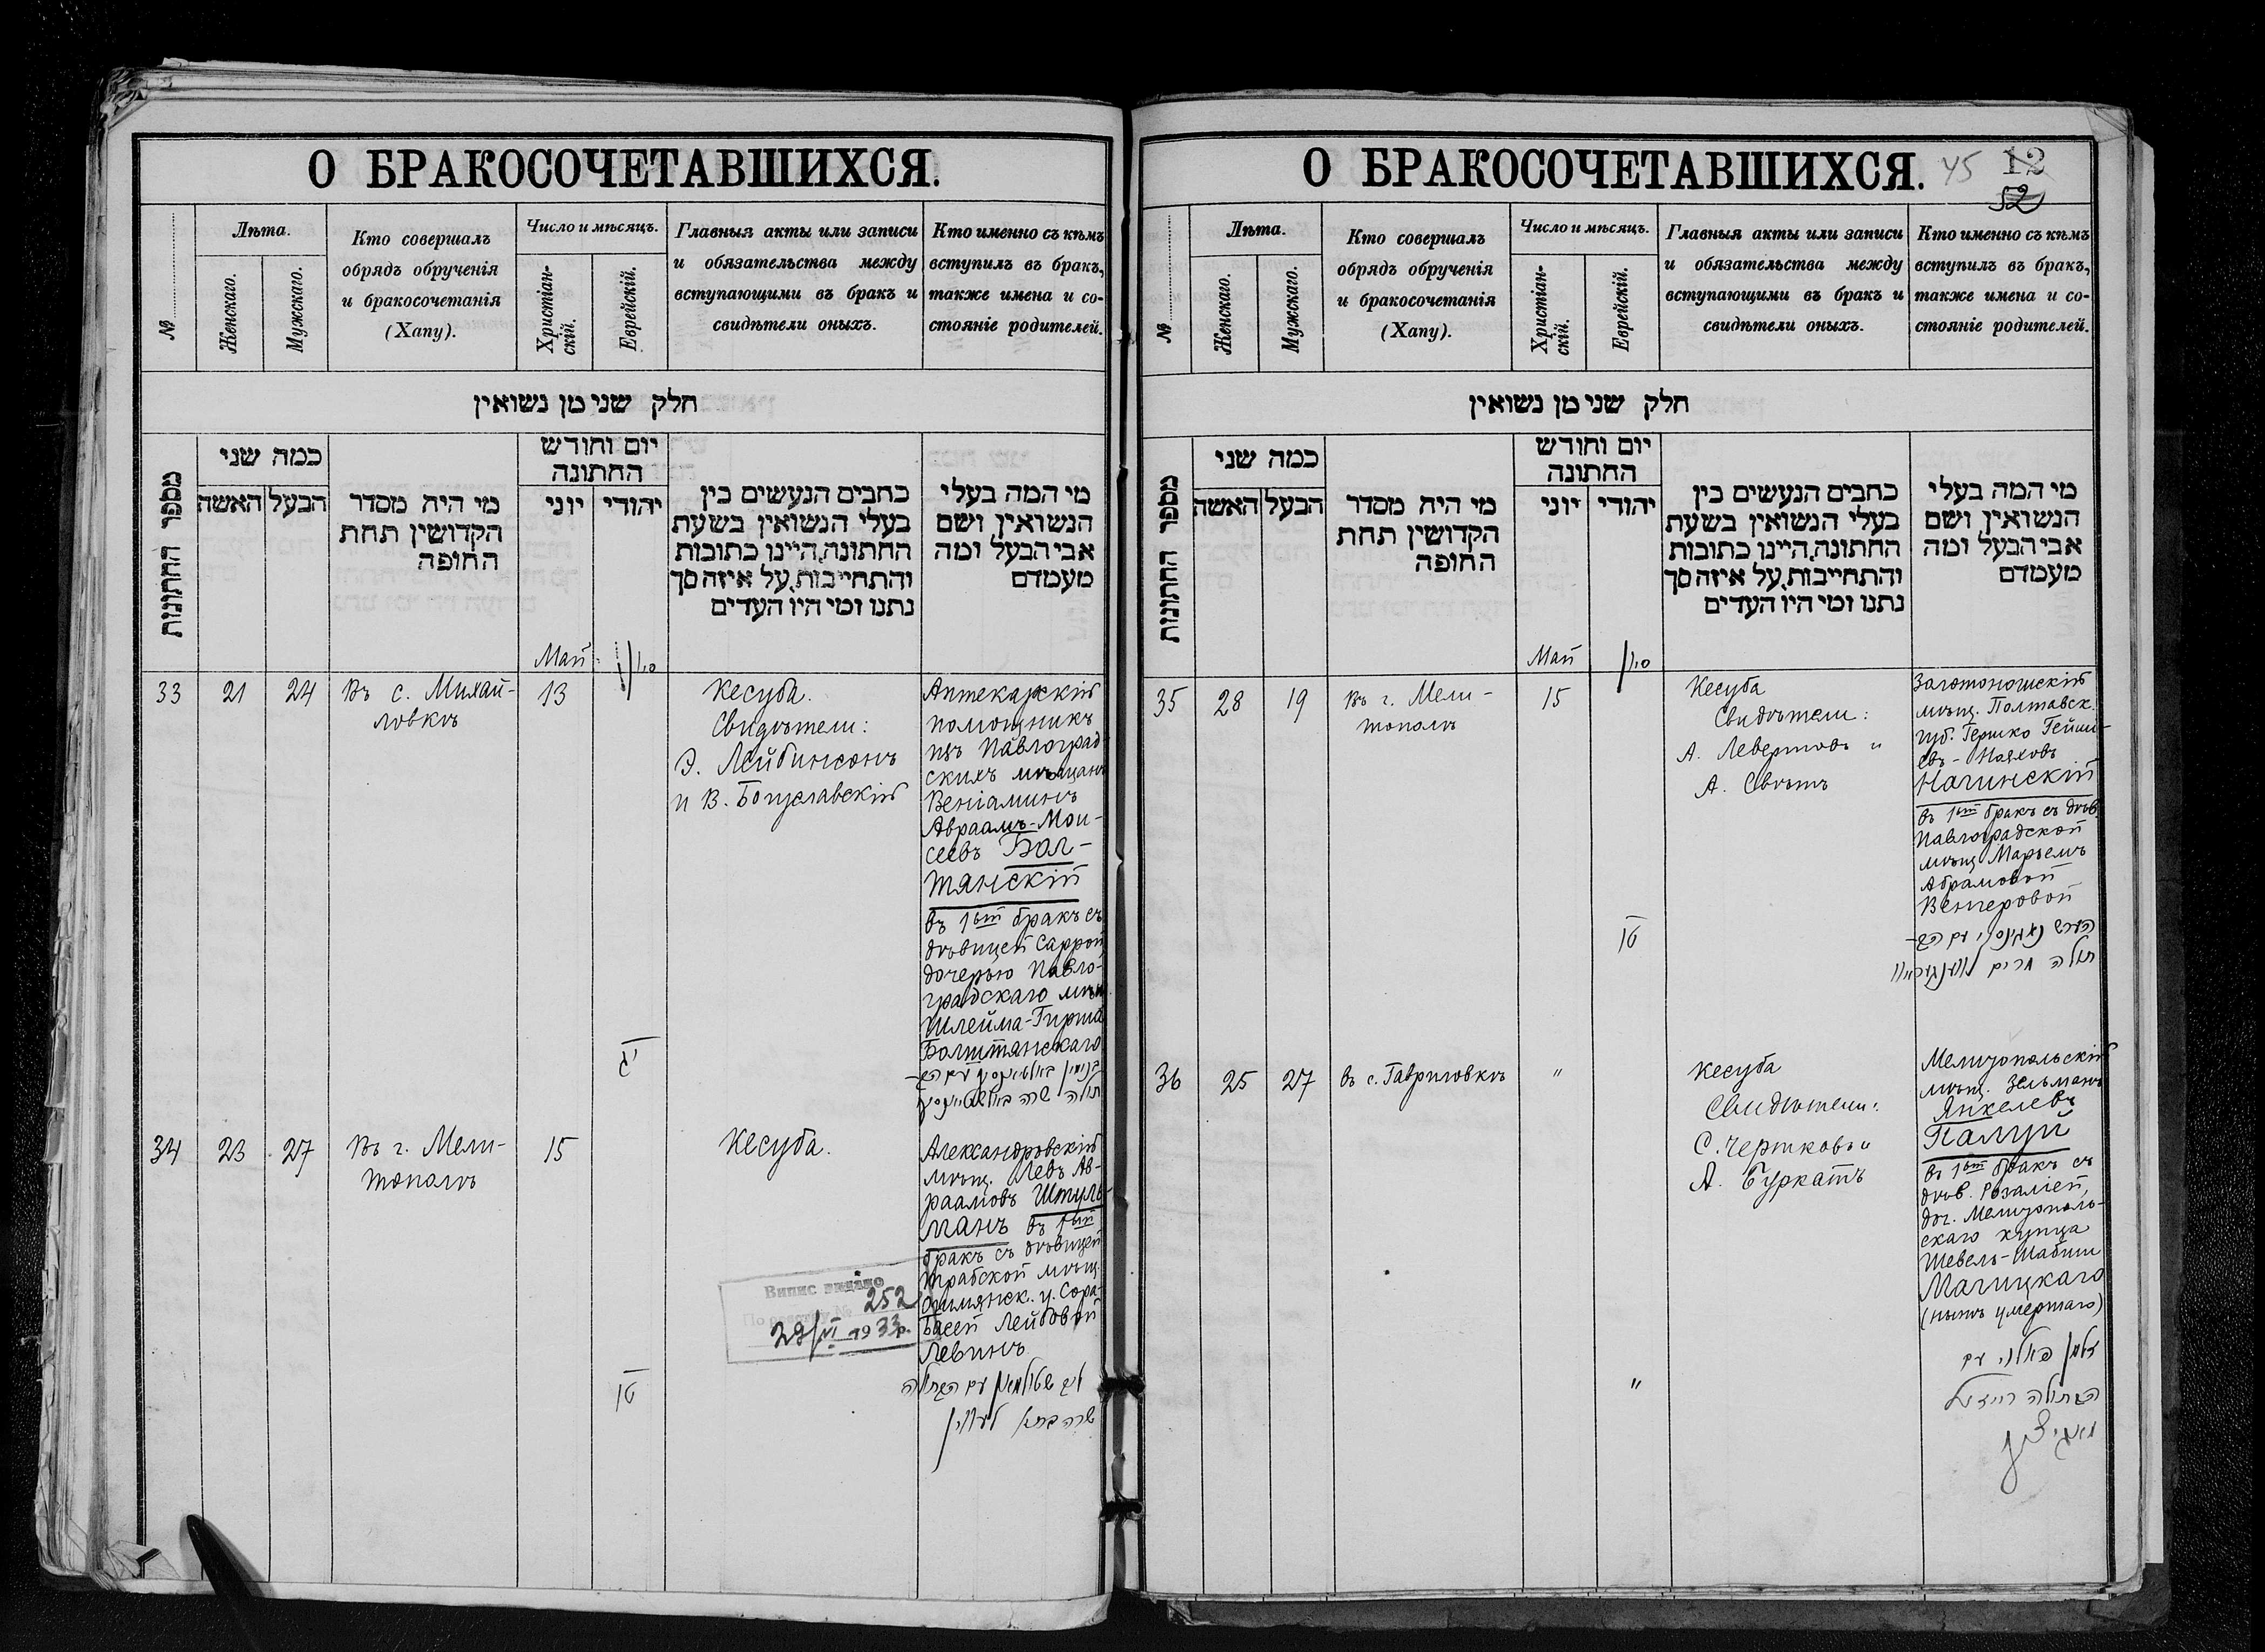 О БРАКОСОЧЕТАВШИХСЯ.
№
Лѣта.
Женскаго.
Мужскаго.
Кто совершалъ
обрядъ обрученія
и бракосочетанія
(Хапу).
Число и мѣсяцъ.
Христіан-
скій.
Еврейскій.
Главныя акты или записи
и обязательства между
вступающими въ бракъ и
свидѣтели оныхъ.
Кто именно съ кѣмъ
вступилъ въ бракъ,
также имена и со-
стояніе родителей.
חלק שני מן נשואין
מספר החתונות
כמה שני
האשה
הבעל
מי היה מסדר
הקדושין תחת
החופה
יום וחודש
החתונה
יוני
יהודי
כתבים הנעשים בין
בעלי הנשואין בשעת
החתונה, היינו כתובות
והתחייבות, על איזה סך
נתנו ומי היו העדים
מי המה בעלי
הנשואין ושם
אבי הבעל ומה
מעמדם
Май
33
21
24
Въ с. Михай-
ловкѣ
13
יג
Кесуба.
Свидѣтели:
Э. Лейбинсонъ
и В. Богуславскій
Аптекарскій
помощникъ
изъ Павлоград-
скихъ мѣщанъ
Веніаминъ
Авраамъ-Мои-
сеевъ Бол-
тянскій
въ 1ый бракъ съ
дѣвицей Саррой
дочерью Павло-
градскаго мѣщ.
Шлейма-Гирша
Болтянскаго
34
23
27
Въ г. Мели-
тополѣ
15
טו
Кесуба.
Александровскій
мѣщ. Левъ Ав-
раамовъ Штуль-
манъ въ 1ый
бракъ съ дѣвицей
Трабской мѣщ.
Ошмянск. у. Сора-
Басей Лейбовой
Левинъ
שרה בתי׳ לעווין
Випис видано
По реєстру № 252
29/VI 1933р.
О БРАКОСОЧЕТАВШИХСЯ.
45
12
52
№
Лѣта.
Женскаго.
Мужскаго.
Кто совершалъ
обрядъ обрученія
и бракосочетанія
(Хапу).
Число и мѣсяцъ.
Христіан-
скій.
Еврейскій.
Главныя акты или записи
и обязательства между
вступающими въ бракъ и
свидѣтели оныхъ.
Кто именно съ кѣмъ
вступилъ въ бракъ,
также имена и со-
стояніе родителей.
חלק שני מן נשואין
מספר החתונות
כמה שני
האשה
הבעל
מי היה מסדר
הקדושין תחת
החופה
יום וחודש
החתונה
יוני
יהודי
כתבים הנעשים בין
בעלי הנשואין בשעת
החתונה, היינו כתובות
והתחייבות, על איזה סך
נתנו ומי היו העדים
מי המה בעלי
הנשואין ושם
אבי הבעל ומה
מעמדם
Май
35
28
19
Въ г. Мели-
тополѣ
15
טו
Кесуба
Свидѣтели:
А. Левертовъ и
А. Свѣтъ
Золотоношскій
мѣщ. Полтавск.
губ. Гершко
Нагинскій
въ 1ый бракъ съ дѣв.
Павлоградской
мѣщ. Марьемъ
Абрамовой
Венгеровой
36
25
27
въ с. Гавриловкѣ
"
"
Кесуба
Свидѣтели:
С. Чертковъ и
А. Буркатъ
Мелитопольскій
мѣщ. Зельманъ
Янкелевъ
Палуй
въ 1ый бракъ съ
дѣв. Розаліей,
доч. Мелитополь-
скаго купца
Шевель-Шабши
Магицкаго
(нынѣ умершаго)